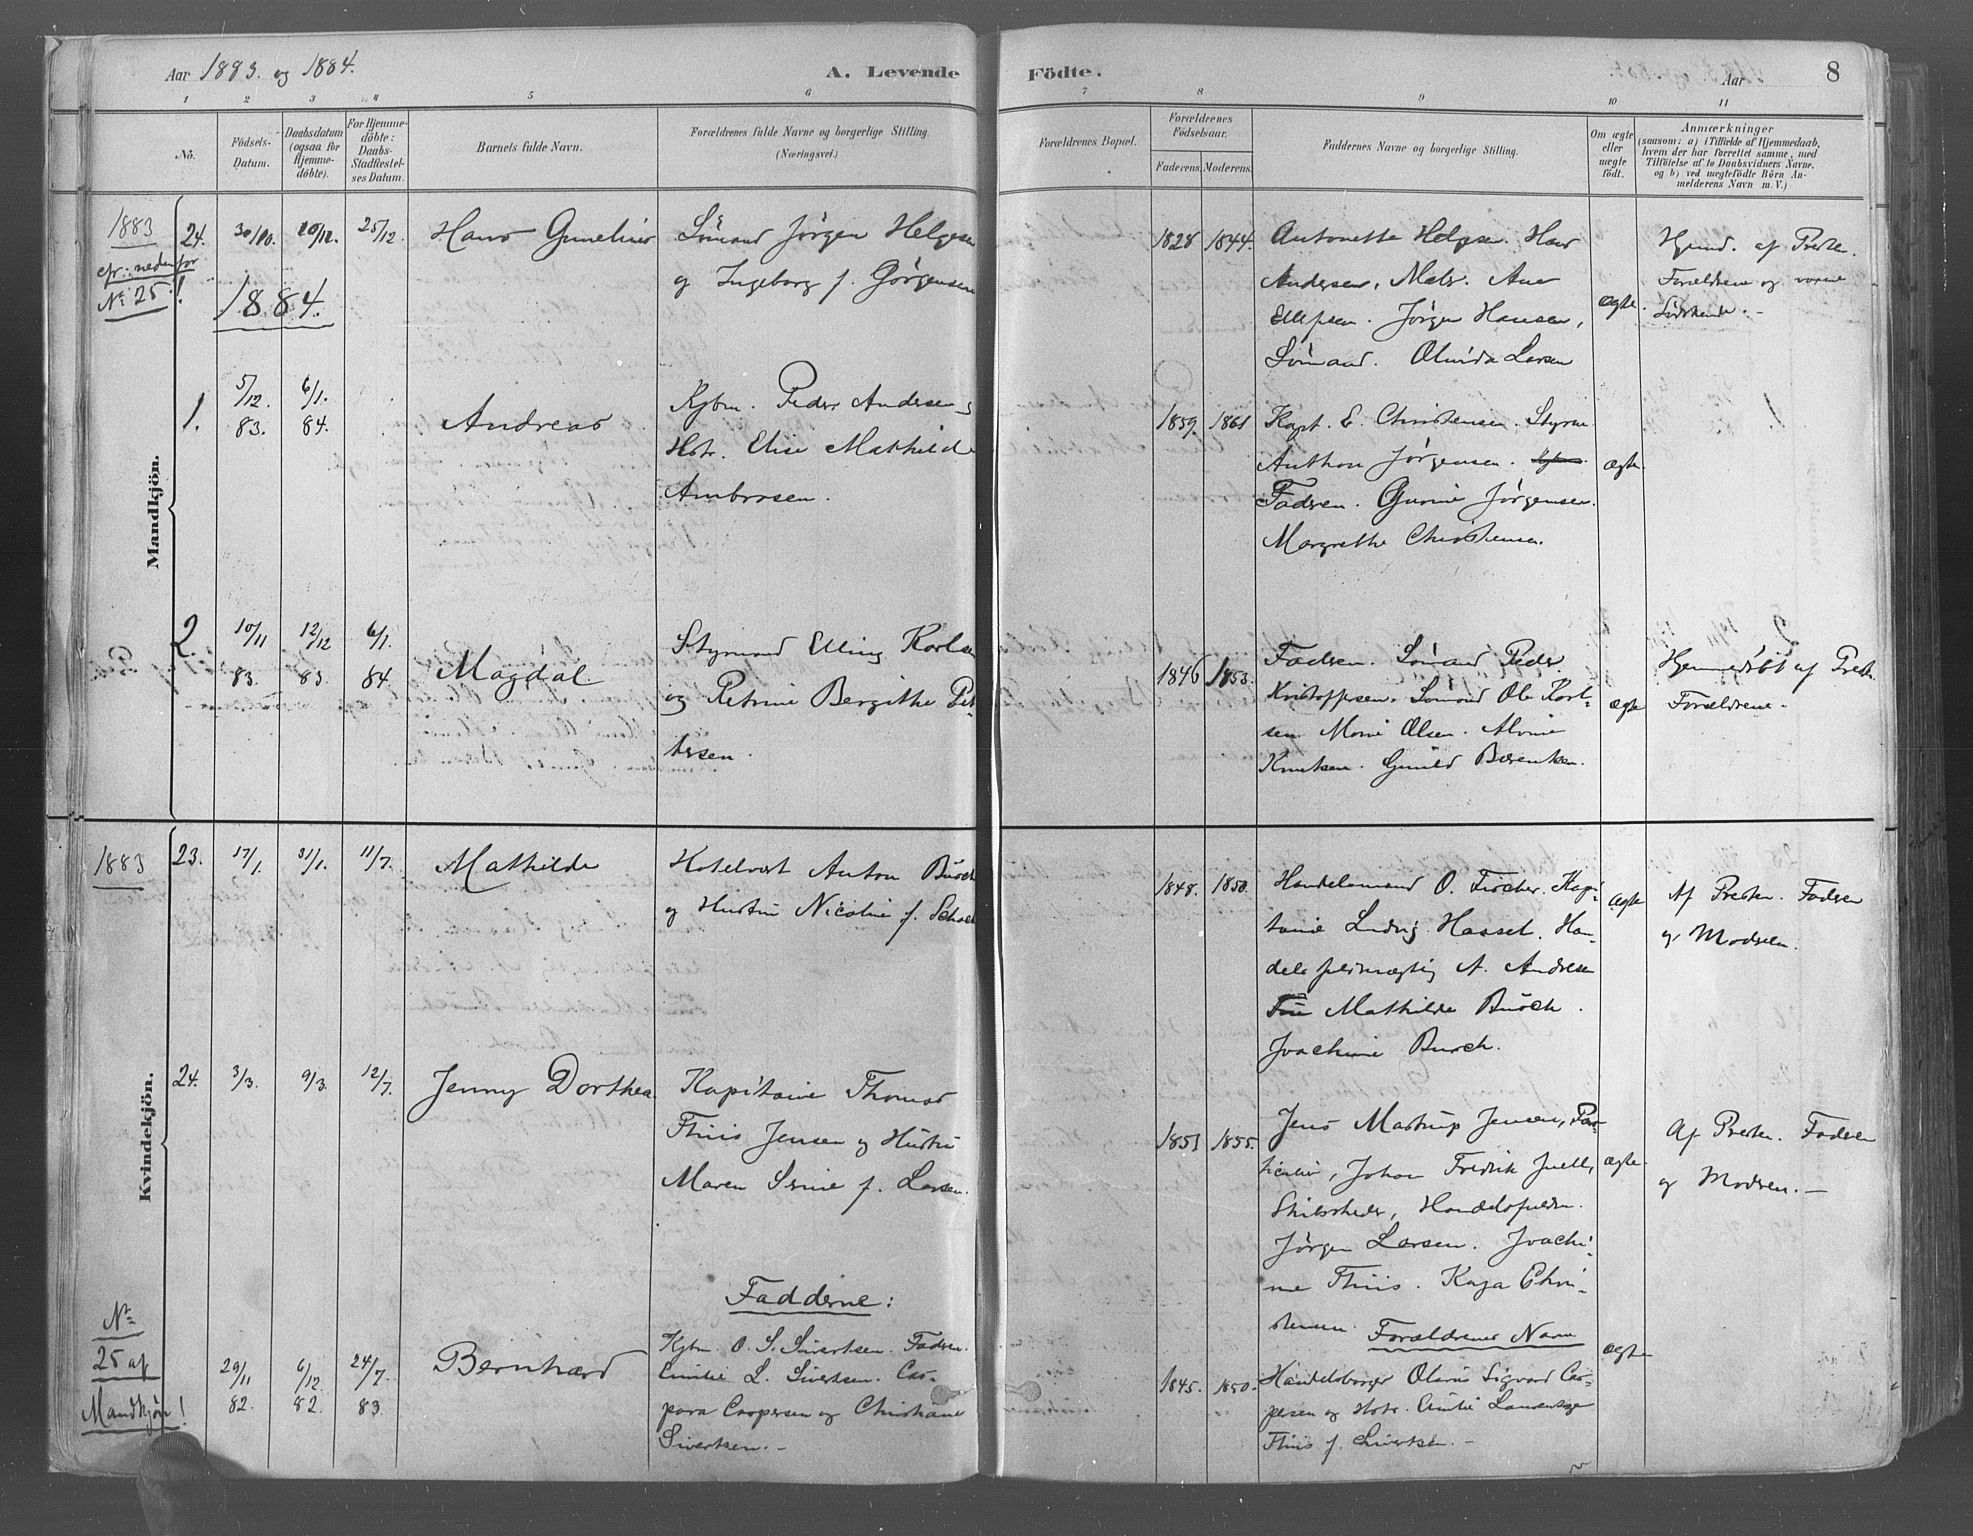 Aar 1883. og 1884.
A. Levende Födte.
Aar
8
1 2 3 4 5 6 7 8 9 10 11
No.
Födsels-
Datum.
Daabsdatum
(ogsaa for
Hjemme-
döbte).
For Hjemme-
döbte:
Daabs-
Stadfæstel-
ses Datum.
Barnets fulde Navn.
Forældrenes fulde Navne og borgerlige Stilling.
(Næringsvei.)
Forældrenes Bopæl.
Forældrenes
Födselsaar.
Faderens. Moderens.
Faddernes Navne og borgerlige Stilling.
Om ægte
eller
uægte
födt.
Anmærkninger
(saasom: a) i Tilfælde af Hjemmedaab,
hvem der har forrettet samme, med
Tilföielse af to Daabsvidners Navne.
og b) ved uægtefödte Börn An-
melderens Navn m. V.)
Mandkjön.
1883
cfr. nedenfor
No 25!
24. 30/10. 20/12. 25/12.
Hans
Sömand Jörgen Helgesen
og Ingeborg f. Görgensen
1828 1844.
Antonette Helgesen. Hans
Andersen, Matr. Ane
Ellefsen. Jörgen Hansen,
Sömand. Olvida Larsen
ægte.
Hjmd. af Presten.
Forældrene og voxne
Södskende.-
1884.
1. 5/12. 83. 6/1. 84.
Andreas
Kjbm. Peder Andersen
Hstr. Elise Mathilde
Ambrosen.
1859. 1861
Kapt. E. Christensen. Styrm
Anthon Jørgensen.
Fadren. Gurine Jørgensen.
Margrethe Christensen.
ægte
2. 10/11 83. 12/12 83. 6/1. 84
Magdal.
Styrmand Elling Karlsen
og Petrine Bergithe Pet-
tersen.
1846 1853.
Fadren. Sömand Peder
Kristoffersen. Sömand Ole Karl-
sen. Marie Olsen. Alvine
Knutsen. Gunild Bærentsen.
ægte
Hjemmedöbt af Presten.
Forældrene.
Kvindekjön.
1883
23. 17/1. 31/1. 11/7.
Mathilde
Hotelvært Anton Busch
og Hustru Nicoline f.
1848. 1850.
Handelsmand O. Fischer. Kapi-
taine Ludvig Hassel. Han-
delsfuldmægtig A. Andresen
Mathilde Busch.
Joachime Busch.
ægte
Af Presten. Fadren
og Modren.
24. 3/3. 9/3. 12/7.
Jenny Dorthea
Kapitaine Thomas
Thiis Jensen og Hustru
Maren Serine f. Larsen.
1851 1855.
Jens Mastrup Jensen, Par-
ticulier, Johan Fredrik Juell,
Skibsrheder, Handelsfuldm.
Jörgen Larsen. Joachi-
me Thiis. Kaja Chri-
stensen.
ægte.
Af Presten. Fadren
og Modren.-
No
25 af
Mandkjön!
29/11 82. 6/12. 82. 24/7. 83.
Bernhard
Fadderne:
Kjbm. O. S. Sivertsen. Fadren.
Emilie L. Sivertsen. Cas-
para Caspersen og Christiane
Sivertsen.-
1845. 1850.
Forældrenes Navn
Handelsborger Olavus Sigvard Cas-
persen og Hstr. Emilie Laurentze
Thiis f. Sivertsen.-
ægte